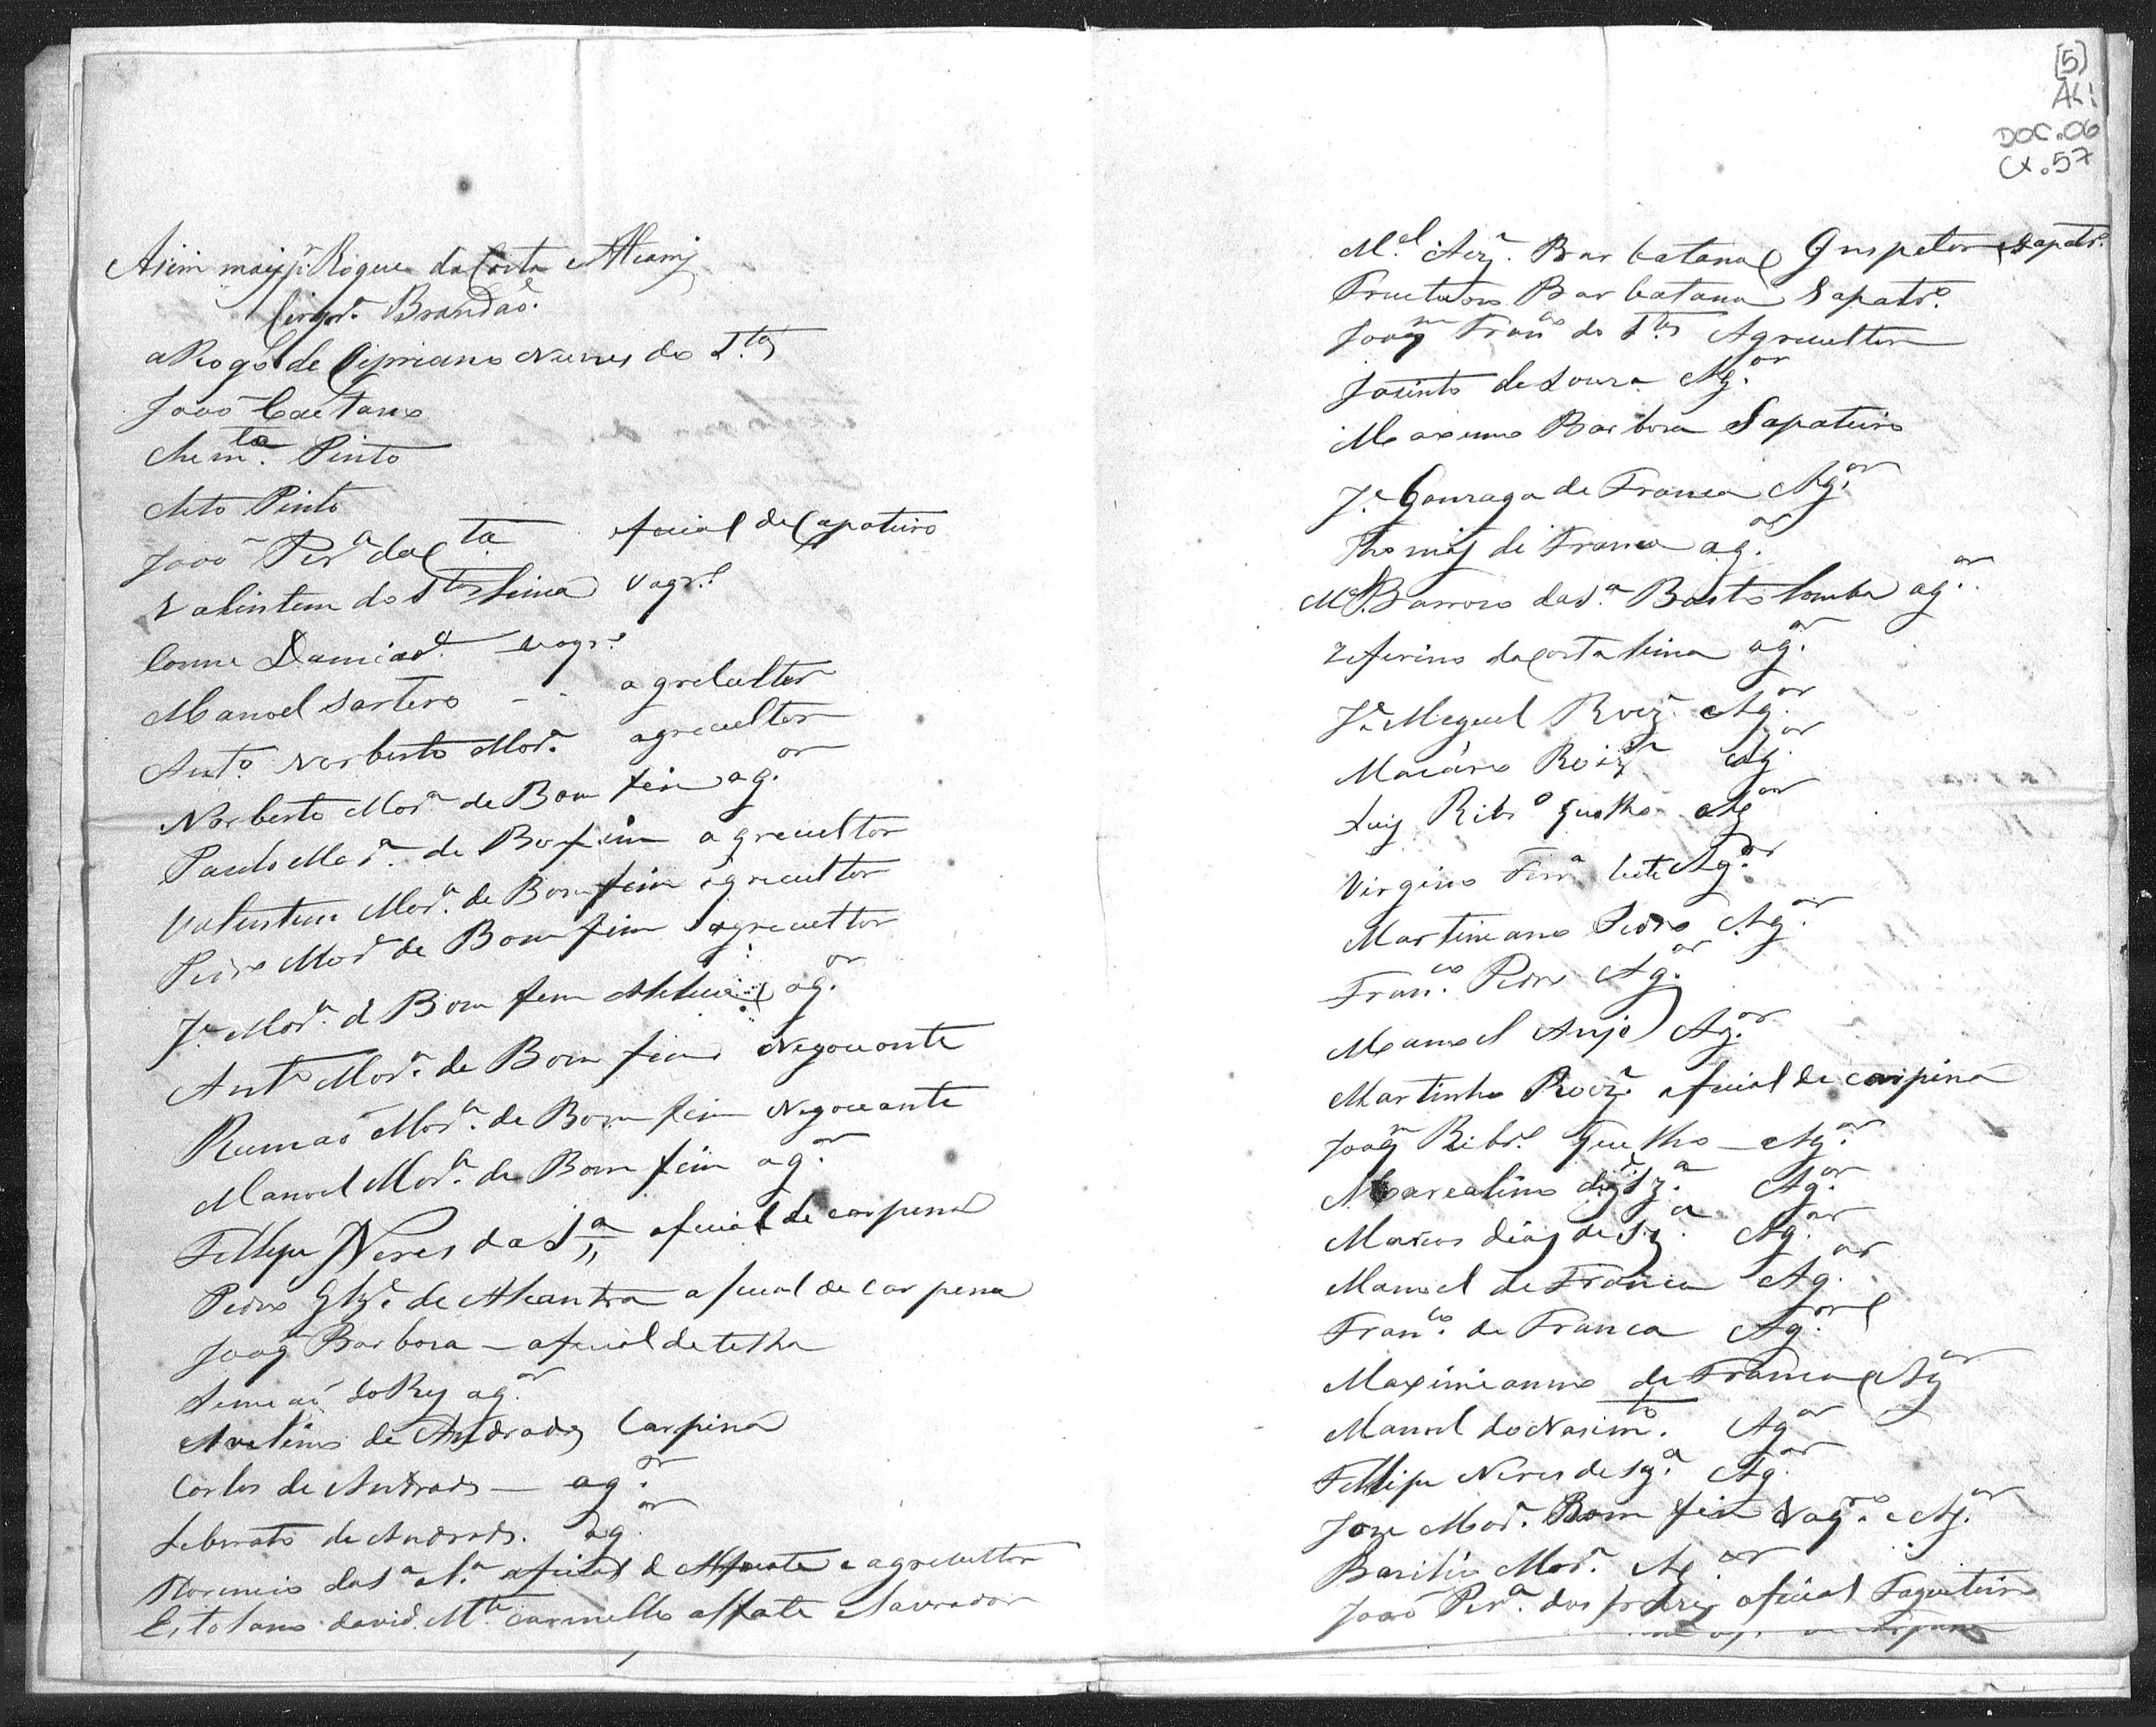 Asim mais Jᵉ Roque da Costa e Alcamj
Brandaõ.
aRogo de Cipriano Nunes do S.tos
Joaõ Caetano
Pinto
Pinto
Joaõ Per.a da C.ta oficial de Çapateiro
Valintim do S.tos Lima vagr.o
Come Damiaõ vagr.o
Manoel Sartero - - agrecultor
Ant.o Norberto Mor.a agrecultor
Norberto Mor.a de Bom fim ag.or
Paulo Mor.a de Bofim agrecultor
Valentim Mor.a de Bomfim agrecultor
Pedro Mor.a de Bomfim agrecultor
J.e Mor.a d Bom fim ag.or
Ant.o Mor.a de Bom fim Negoceante
Rumaõ Mor.a de Bom fim Negoceante
Manoel Mor.a de Bom fim ag.or
Fellepe Neres da S.a oficial de carpena
Pedro Glz.e de Alcantra oficial de carpena
Joaq Barboza - oficial de telha
Simiaõ do Rej ag.or
Avelino de Andrade Carpina
Carlos de Andrade - ag.or
Liberato de Andrade. ag.or
Florencio da S.a oficial d Alfaate e agrecultor
david M.el carmello alfate Lavrador
[5]
DOC.06
CX.57
M.el Barbatana Inspetor sapatr.o
Fructuoso Barbatana Sapatr.o
Joaqm Fran.co do S.tos Agrecultor
Jacinto de Souza Ag.or
Maximo Barboza Sapateiro
J.e Gonzaga de Franca Ag.or
Thomaj de Franca ag.or
M.el Barrozo da S.a Basto Lomba ag.or
Zeferino da Costa Lima ag.or
J.e Meguel Roiz Ag.or
Macário Roiz Ag.or
Luij Ribr.o Guelho Ag.or
Virgino Ferr.a Leite Ag.or
Martiniano Pedro Ag.or
Fran.co Pedro Ag.or
Manoel Anjo Ag.or
Martinho Roiz. oficial de carpina
Joaqm Ribr.o Guelho - Ag.or
Marcalino diaj Sz.a Ag.or
Marcos diaj de Sz.a Ag.or
Manoel de Franca Ag.or
Fran.co de Franca Ag.or
Maximiano de Franca Ag.or
Manoel do Nascim.to Ag.or
Fellipe Neres de Sz.a Ag.or
Joze Mor.a Bom fim Vag.ro e Ag.or
Bazilio Mor.a Ag.or
Joaõ Per.a dos oficial Fogueteiro